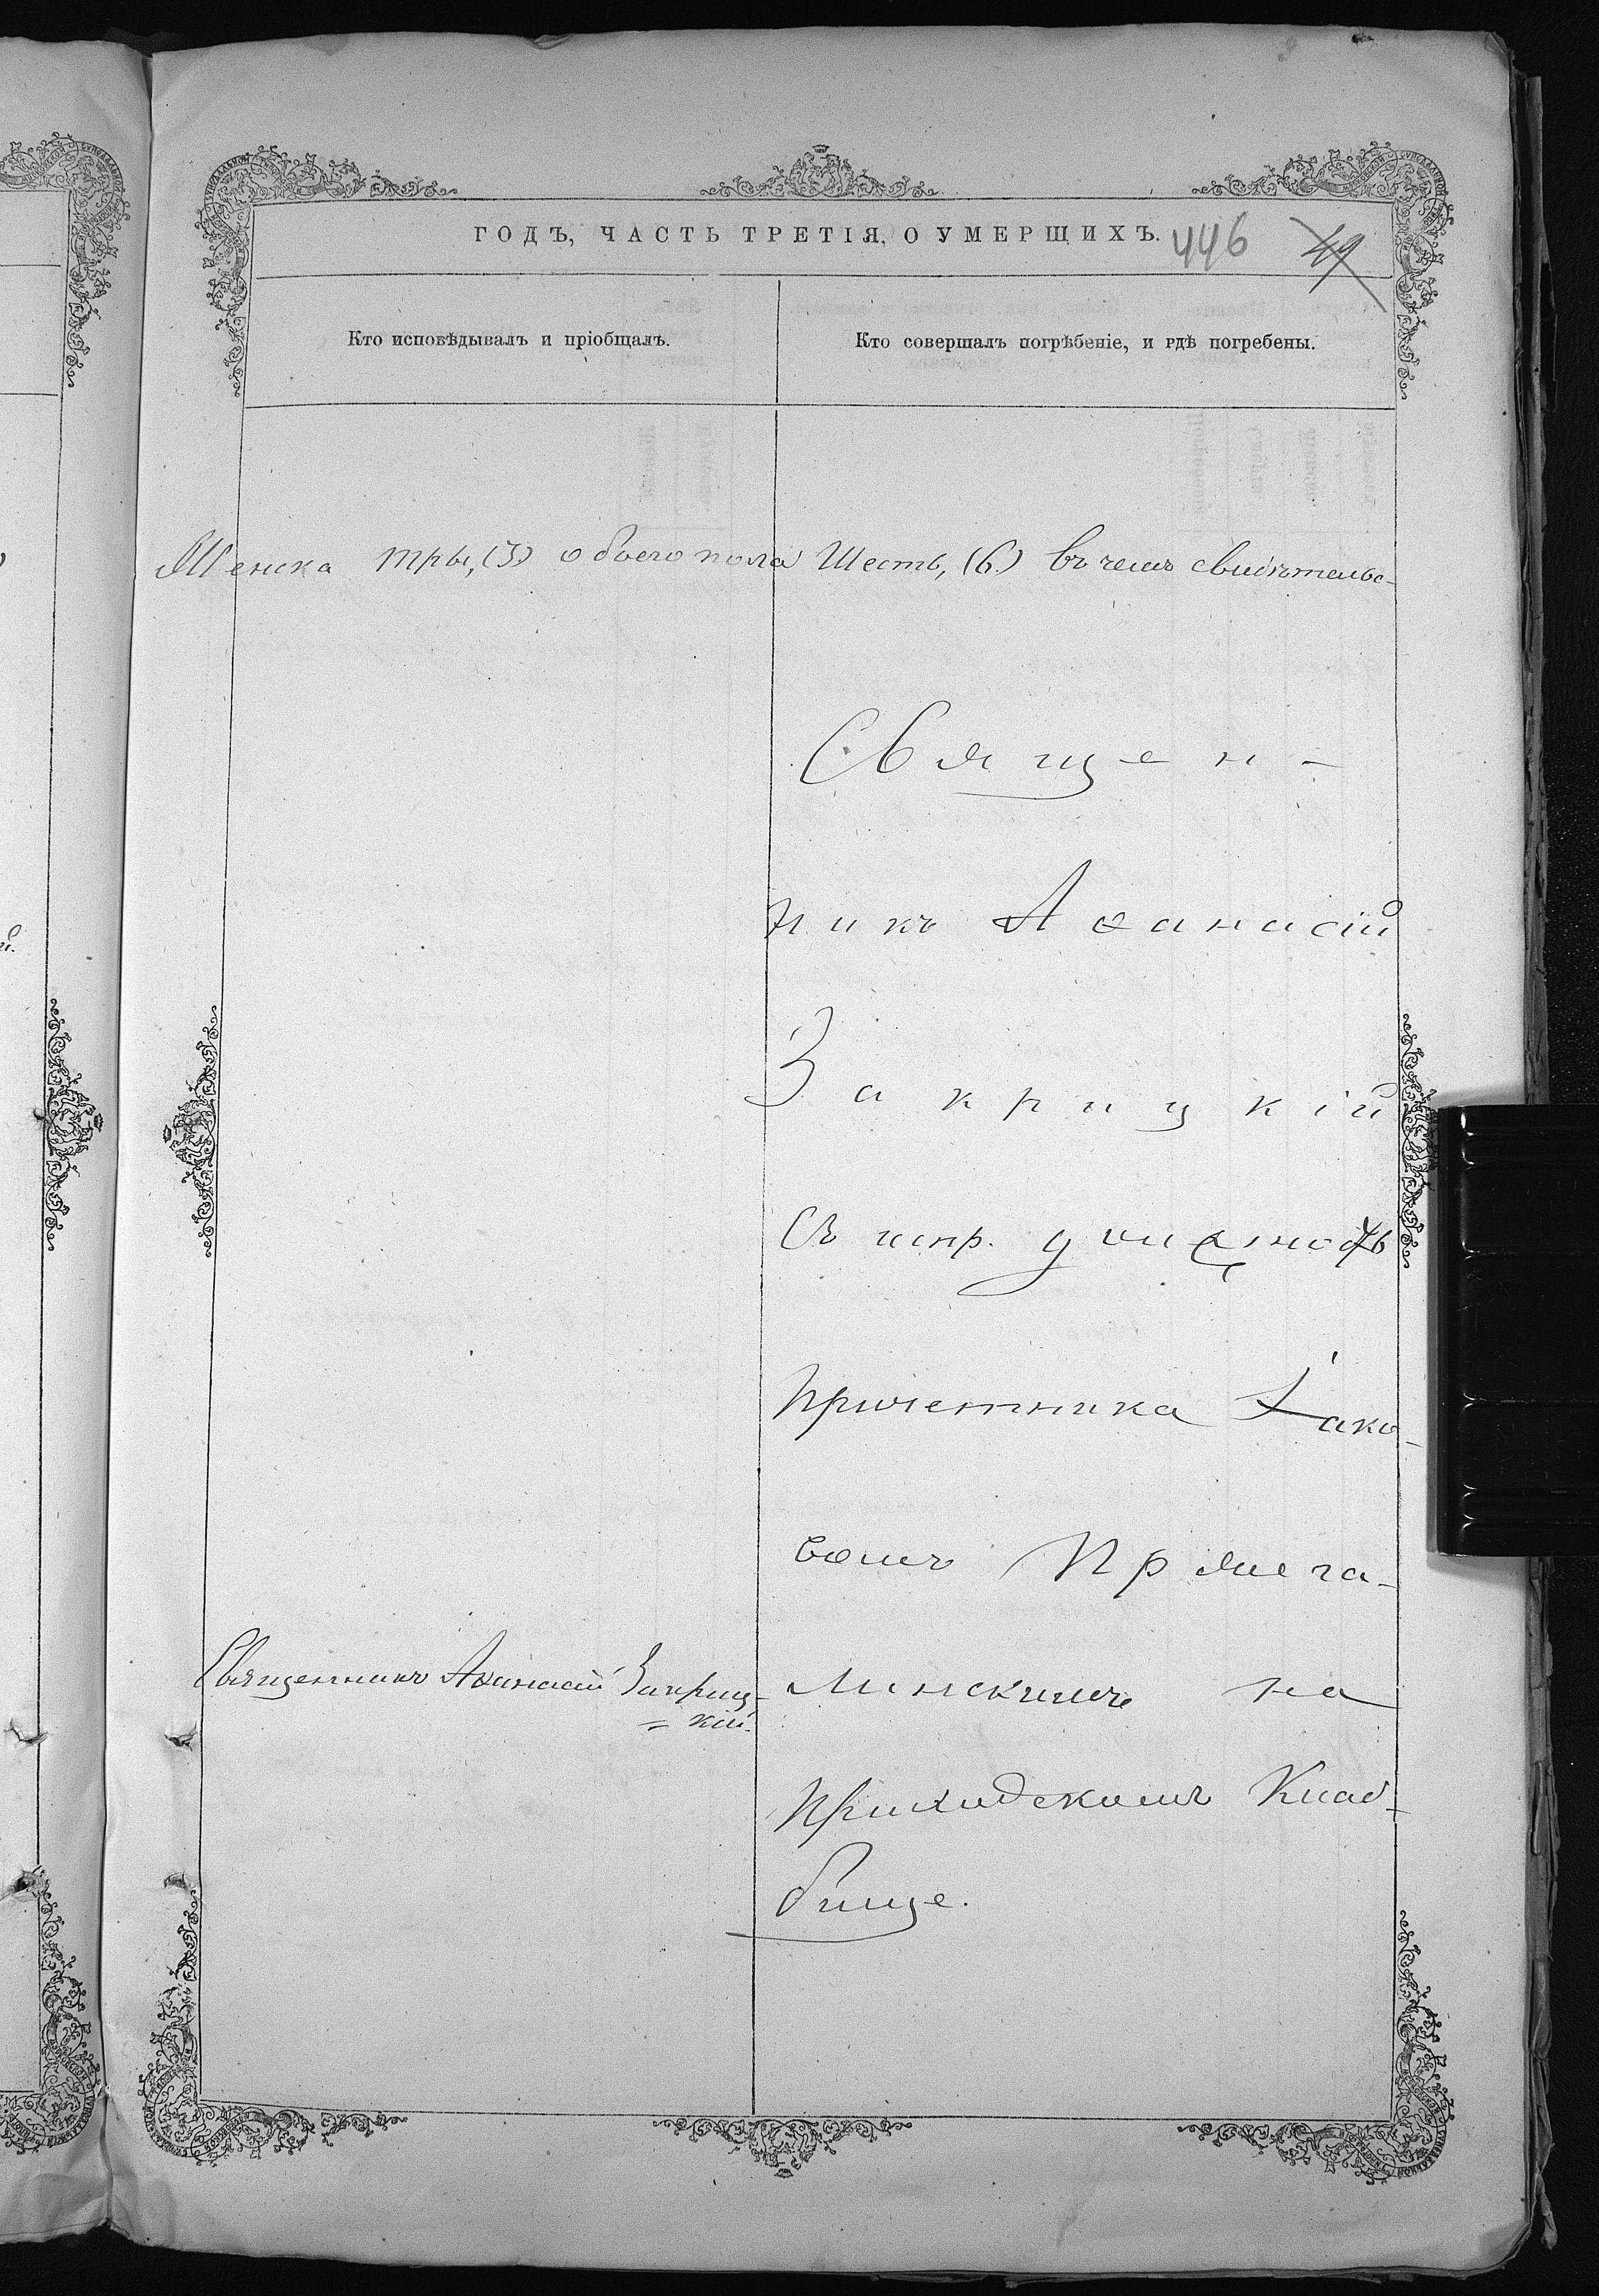 ГОДЪ, ЧАСТЬ ТРЕТІЯ, О УМЕРШИХЪ. 446 49
Кто исповѣдывалъ и пріобщалъ.
Кто совершалъ погрѣбеніе, и гдѣ погребены.
Женска три, (3) обоего пола Шесть, (6.) въ чемъ свидѣтельс-
Священ-
никъ Аѳанасій
Закрицкій
Съ испр. должность
причетника Іако-
вомъ
минскимъ на
приходскомъ Клад-
бище.
Священникъ Аѳанасій Закриц-
=кій.